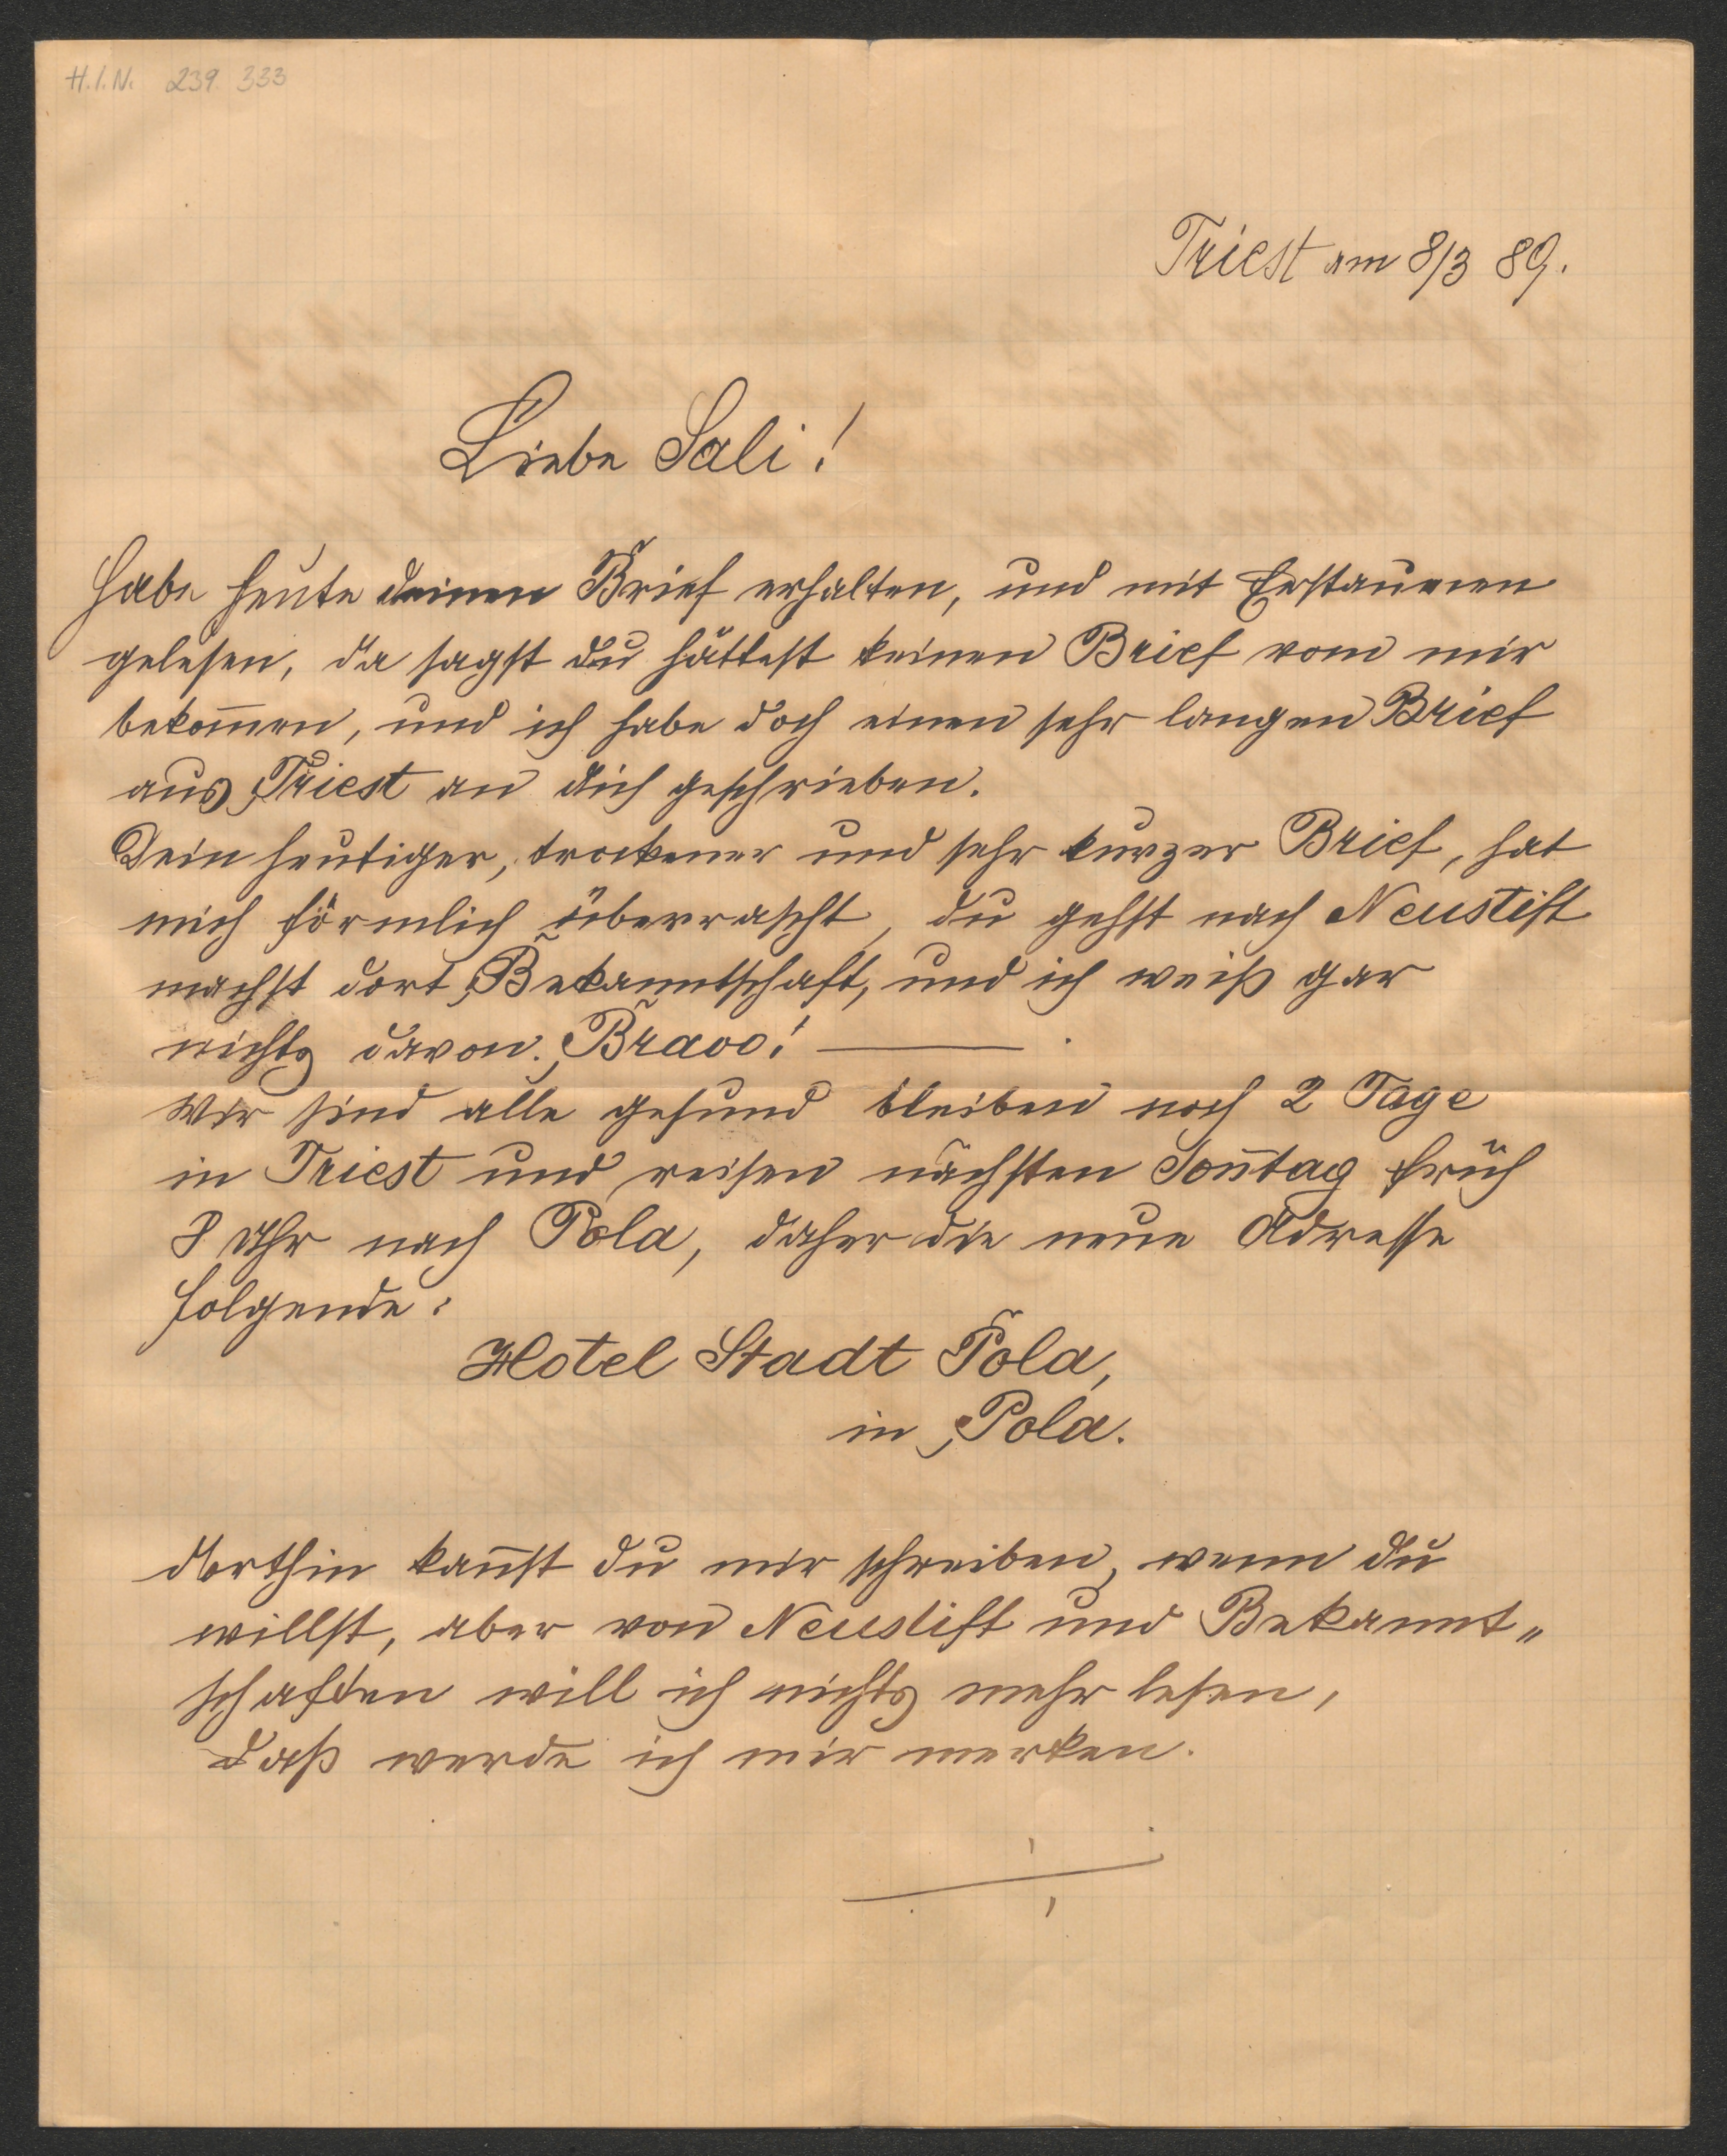 H.I.N. 239 333
Triest am 8/3 89.
Liebe Sali!
Habe heute deinen Brief erhalten, und mit Erstaunen
gelesen, da sagst du hättest keinen Brief vom mir
bekom̄en, und ich habe doch einen sehr langen Brief
aus Triest an dich geschrieben.
Dein heutiger, trockener und sehr kurzer Brief, hat
mich förmlich überrascht, du gehst nach Neustift
machst dort Bekanntschaft, und ich weiß gar
nichts davon. Bravo! ——— .
Wir sind alle gesund bleiben noch 2 Tage
in Triest und reisen nächsten Son̄tag früh
8 Uhr nach Pola, daher die neue Adresse
folgende:
Hotel Stadt Pola,
in Pola.
dorthin kan̄st du mir schreiben, wenn du
willst, aber von Neustift und Bekannt„
schaften will ich nichts mehr lesen,
daß werde ich mir merken.